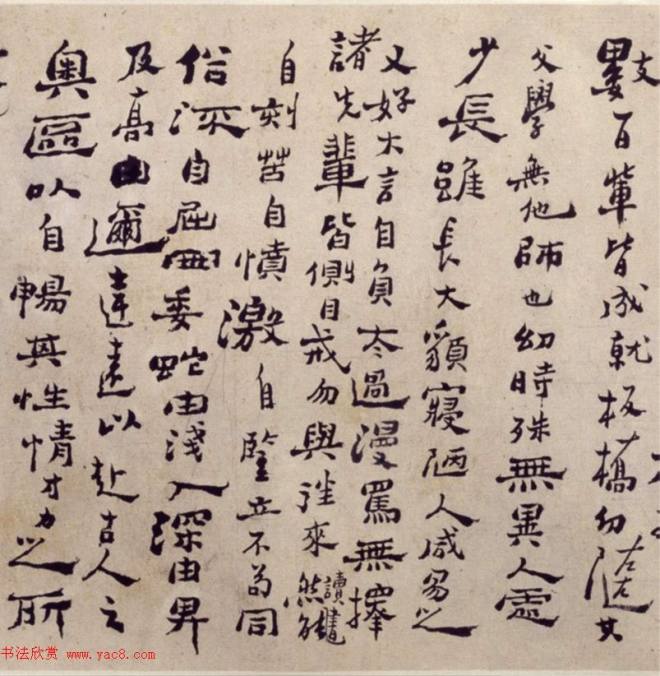 數百輩皆成就板橋幼隨其
父學無他師也幼時殊無異人處
少長雖長大貌寢陋人咸易之
又好大言自負太過漫罵無擇
諸先輩皆側目戒勿與往來然讀書能
自刻苦自憤激自豎立不苟同
俗深自屈曲委蛇由淺入深由卑
及高由邇達遠以赴古人之
奧區以自暢其性情才力之所
书法欣赏 www.yac8.com